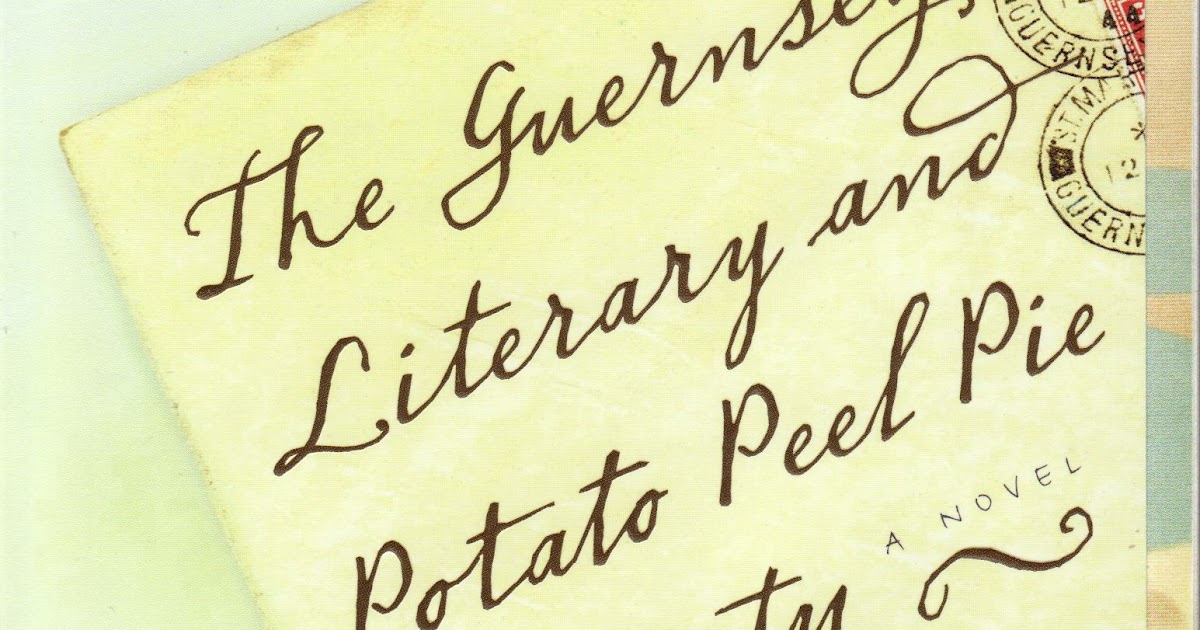 The Guernsey
Literary and
Potato Peel Pie
ty
A NOVEL
GUERNSE
ST. MA
12
GUERN